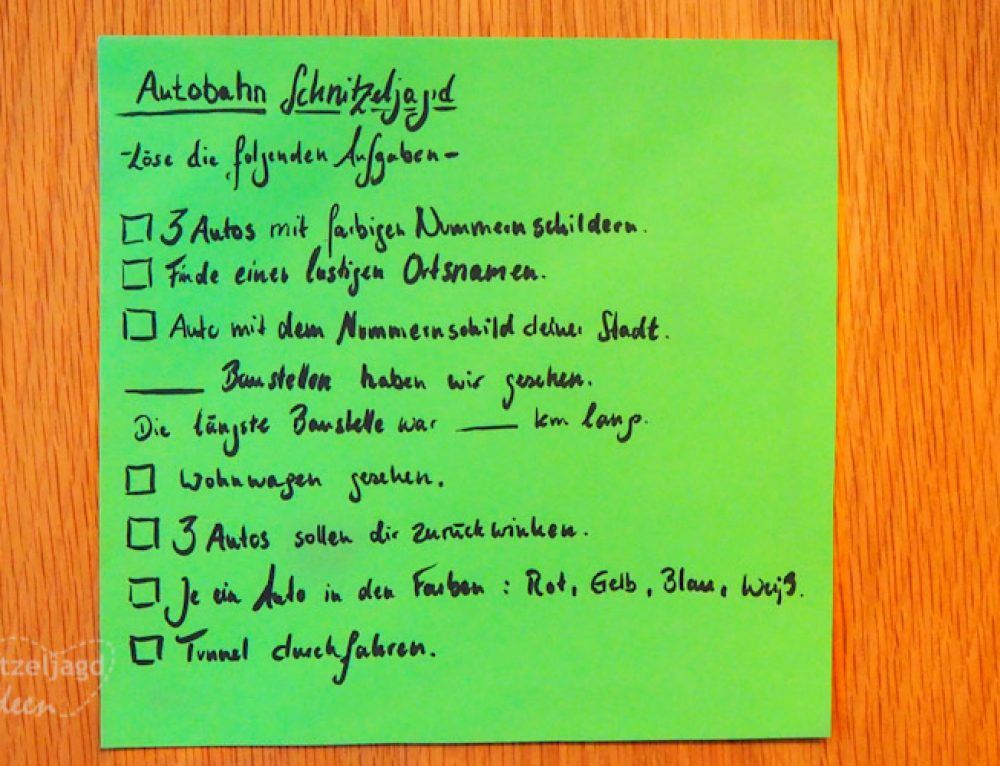 Autobahn Schnitzeljagd
-Löse die folgenden Aufgaben-
3 Autos mit farbigen Nummernschildern.
Finde einen lustigen Ortsnamen.
Auto mit dem Nummernschild deiner Stadt.
____ Baustellen haben wir gesehen.
Die längste Baustelle war ____ km lang.
Wohnwagen gesehen.
3 Autos sollen dir zurückwinken.
Je ein Auto in den Farben: Rot, Gelb, Blau, Weiß.
Tunnel durchfahren.
tzeljagd
deen